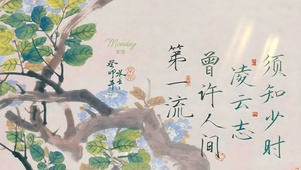 须知少时
凌云志
曾许人间
第一流
Monday